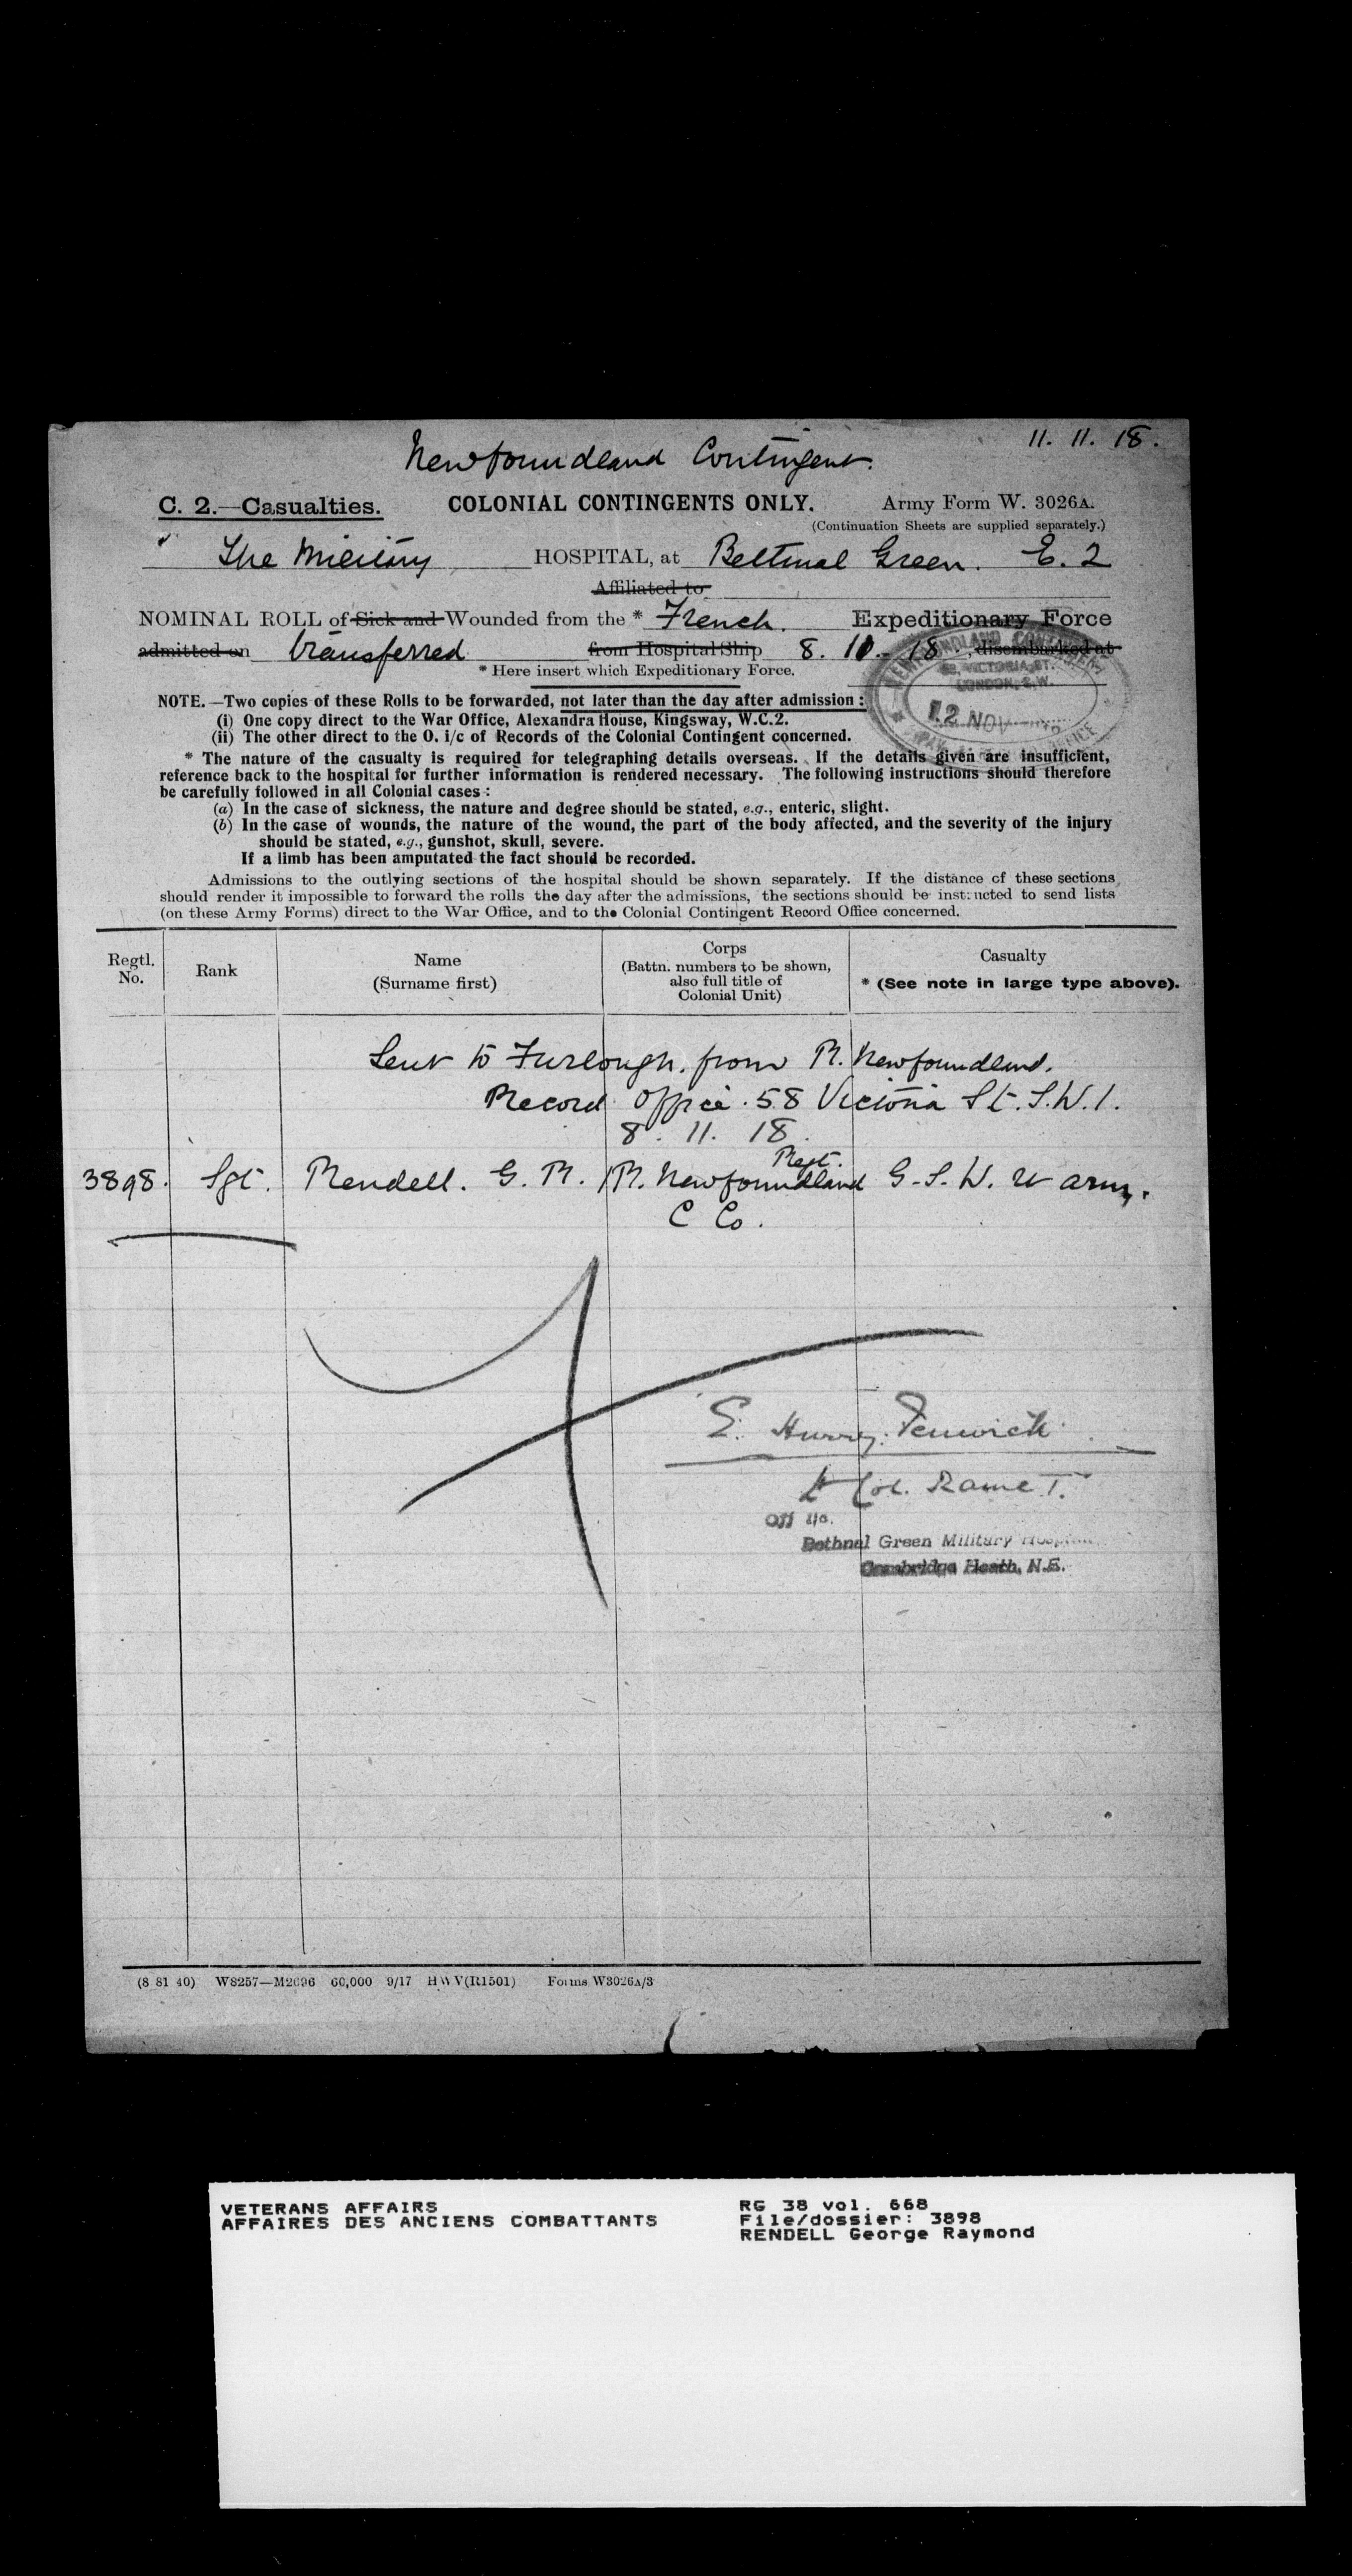 11. 11. 18.
Newfoundland Contingent.
C. 2.—Casualties. COLONIAL CONTINGENTS ONLY. Army Form W. 3026A.
(Continuation Sheets are supplied separately.)
The Military HOSPITAL, at Bethnal Green. E. 2
Affiliated to
NOMINAL ROLL of Sick and Wounded from the * French. Expeditionary Force
admitted on transferred from Hospital Ship 8. 11. 18 , disembarked at
* Here insert which Expeditionary Force.
NEWFOUNDLAND CONTINGENT
58, VICTORIA ST.
LONDON, S.W.
12 NOV
PAY OFFICE
NOTE.—Two copies of these Rolls to be forwarded, not later than the day after admission :
(i) One copy direct to the War Office, Alexandra House, Kingsway, W.C.2.
(ii) The other direct to the O. i/c of Records of the Colonial Contingent concerned.
* The nature of the casualty is required for telegraphing details overseas. If the details given are insufficient,
reference back to the hospital for further information is rendered necessary. The following instructions should therefore
be carefully followed in all Colonial cases :
(a) In the case of sickness, the nature and degree should be stated, e.g., enteric, slight.
(b) In the case of wounds, the nature of the wound, the part of the body affected, and the severity of the injury
should be stated, e.g., gunshot, skull, severe.
If a limb has been amputated the fact should be recorded.
Admissions to the outlying sections of the hospital should be shown separately. If the distance of these sections
should render it impossible to forward the rolls the day after the admissions, the sections should be instructed to send lists
(on these Army Forms) direct to the War Office, and to the Colonial Contingent Record Office concerned.
Regtl. No. Rank Name (Surname first) Corps (Battn. numbers to be shown, also full title of Colonial Unit) Casualty * (See note in large type above).
Sent to Furlough. from R. Newfoundland.
Record Office. 58 Victoria St. S.W.1.
8. 11. 18.
3898. Sgt. Rendell. G. R. 1/R. Newfoundland Regt. G.S.W. arm.
C Co.
E. Hurry. Fenwick
Lt Col. R.A.M.C.T.
Off i/c.
Bethnal Green Military Hospital
Cambridge Heath, N.E.
(8 81 40) W8257—M2696 60,000 9/17 H W V(R1501) Forms W3026A/3
VETERANS AFFAIRS
AFFAIRES DES ANCIENS COMBATTANTS
RG 38 vol. 668
File/dossier: 3898
RENDELL George Raymond